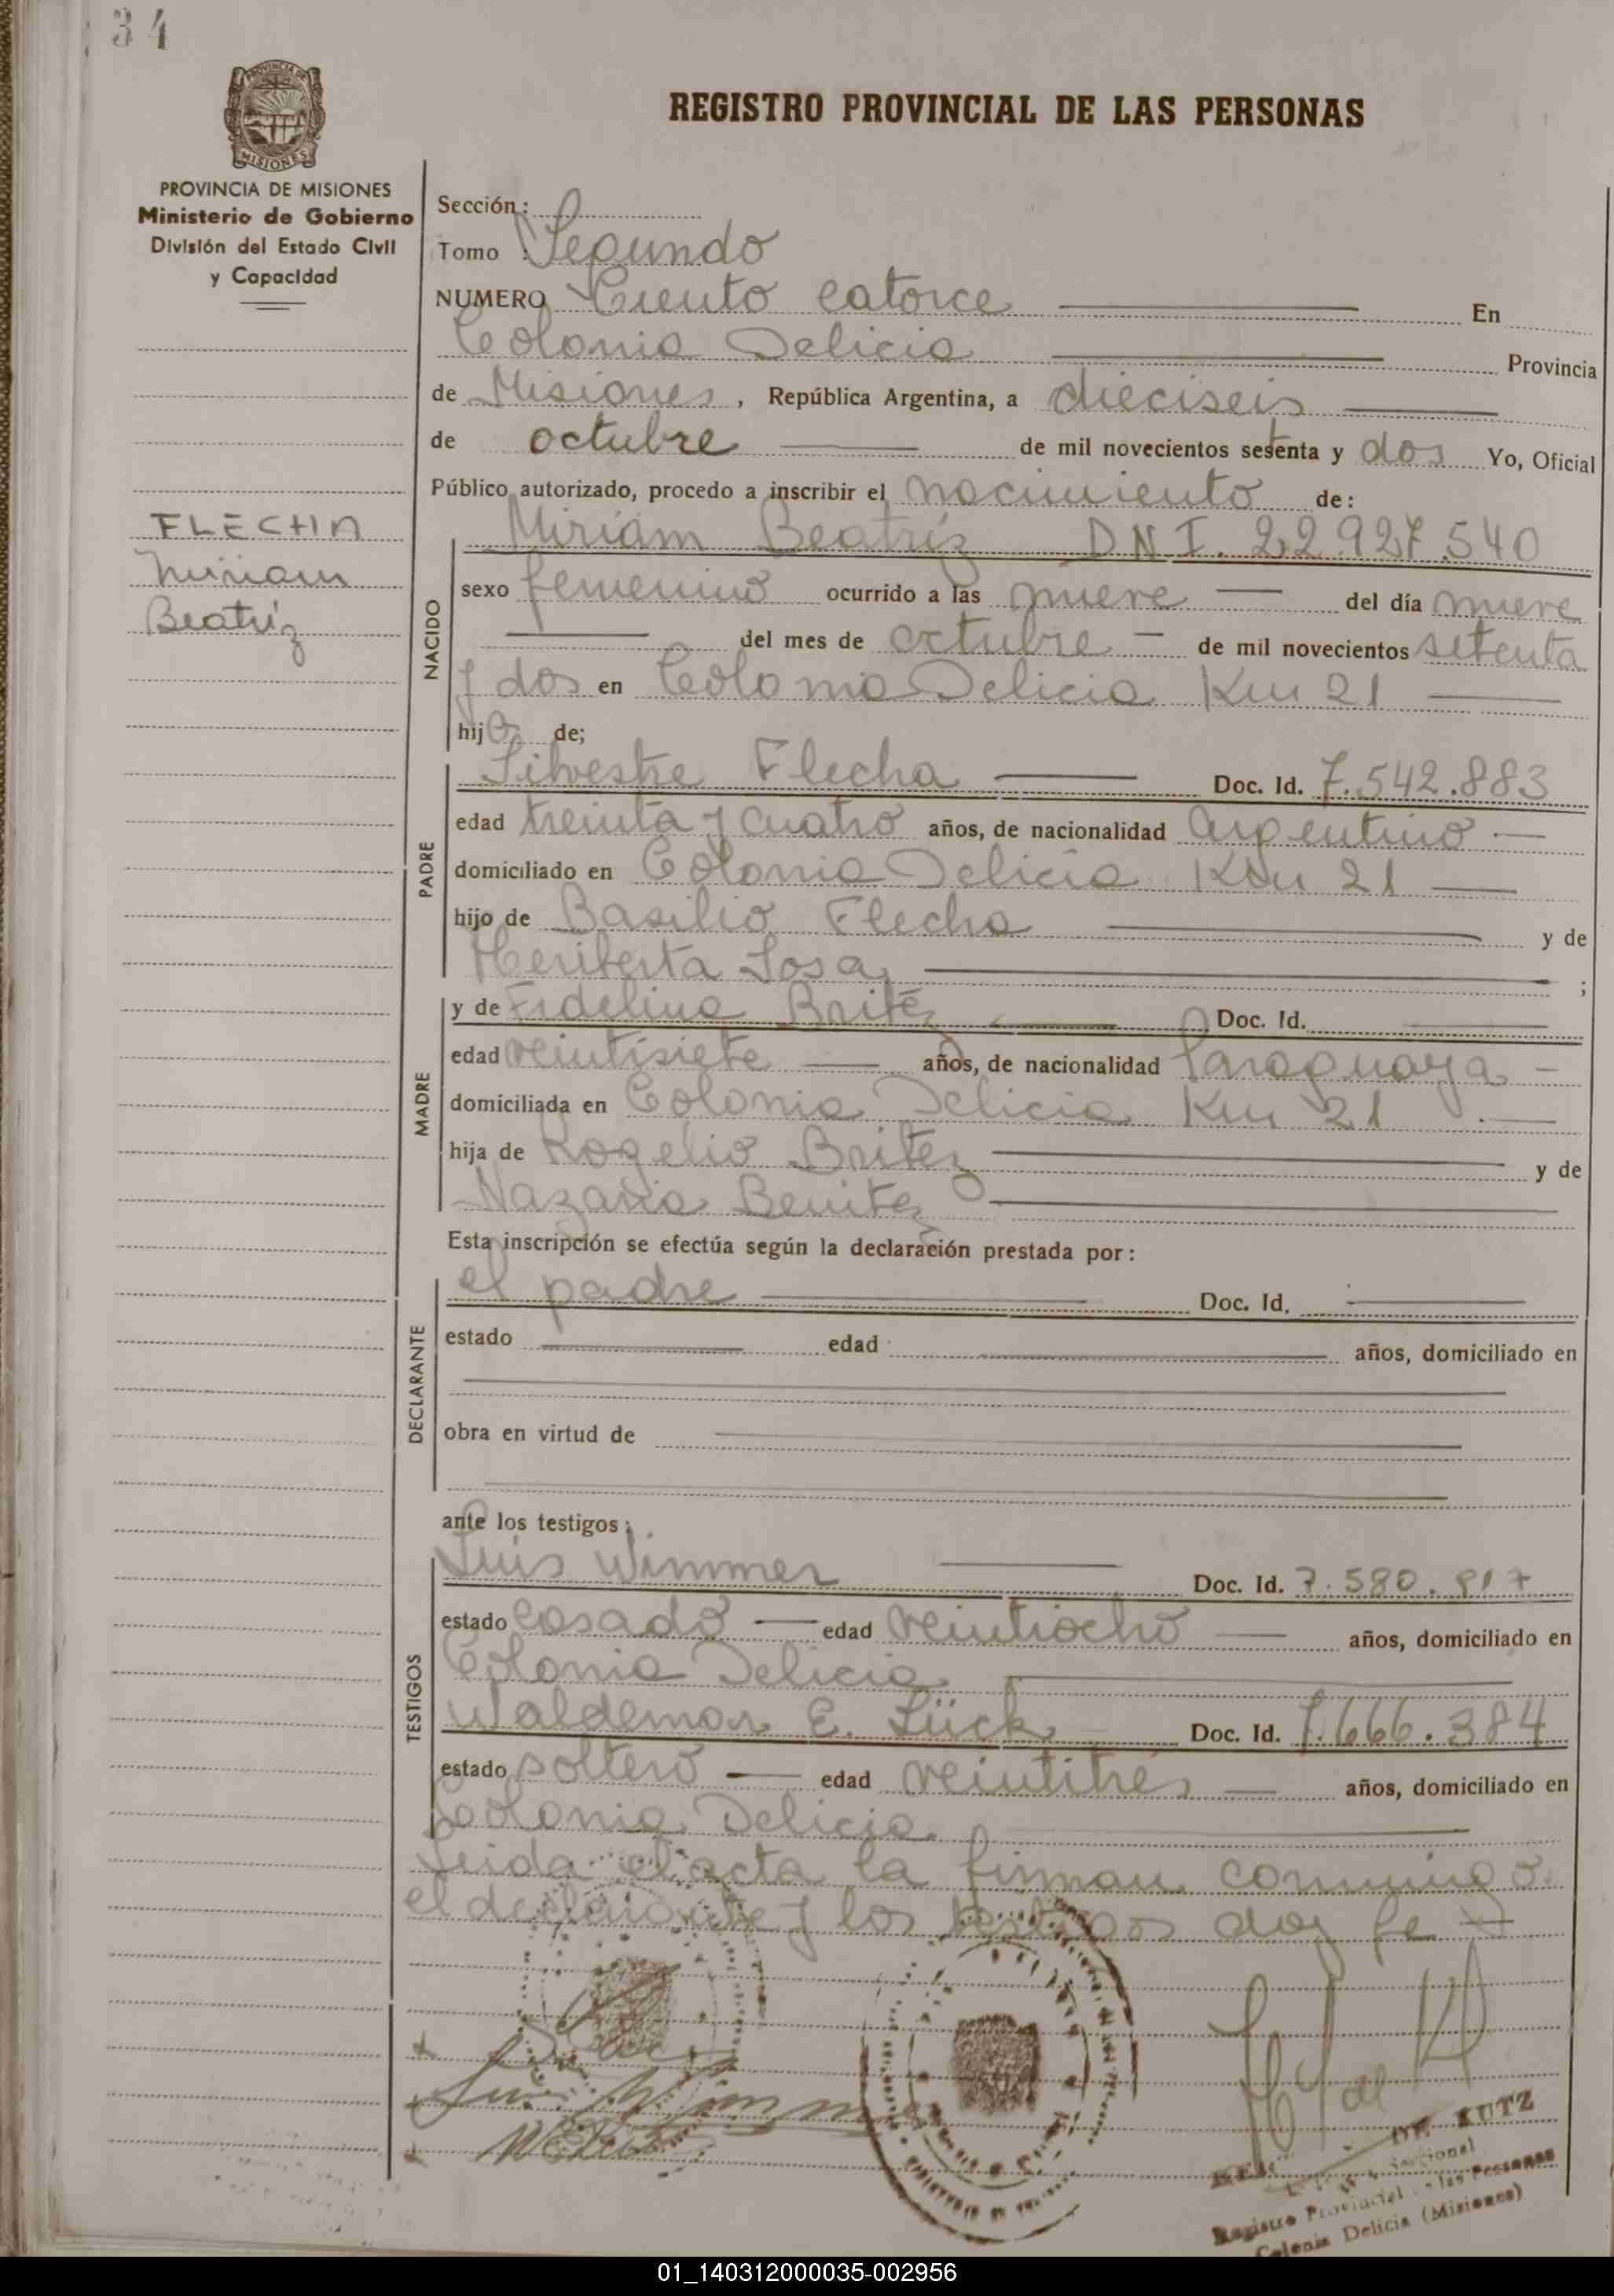 34
REGISTRO PROVINCIAL DE LAS PERSONAS
PROVINCIA DE MISIONES
Ministerio de Gobierno
División del Estado Civil
y Capacidad
Sección:
Tomo : Segundo
NUMERO Ciento catorce En
Colonia Delicia Provincia
de Misiones, República Argentina, a dieciseis
de octubre de mil novecientos setenta y dos Yo, Oficial
Público autorizado, procedo a inscribir el nacimiento de:
FLECHA
Miriam
Beatríz
NACIDO
Miriam Beatríz DNI. 22.927.540
sexo femenino ocurrido a las nueve del día nueve
del mes de octubre de mil novecientos setenta
y dos en Colonia Delicia Km 21
hija de;
PADRE
Silvestre Flecha Doc. Id. 7.542.883
edad treinta y cuatro años, de nacionalidad argentino
domiciliado en Colonia Delicia Km 21
hijo de Basilio Flecha y de
Heriberta Sosa ;
MADRE
y de Fidelina Britez Doc. Id.
edad veintisiete años, de nacionalidad Paraguaya
domiciliada en Colonia Delicia Km 21
hija de Rogelio Britez y de
Nazaria Benitez
Esta inscripción se efectúa según la declaración prestada por:
DECLARANTE
el padre Doc. Id.
estado edad años, domiciliado en
obra en virtud de
ante los testigos:
TESTIGOS
Luis Wimmer Doc. Id. 7.580.817
estado casado edad veintiocho años, domiciliado en
Colonia Delicia
Waldemar E. Lück Doc. Id. 7.666.384
estado soltero edad veintitrés años, domiciliado en
Colonia Delicia
Leida el acta la firman conmigo
el declarante y los testigos doy fe
DE KUTZ
Registro Provincial las Personas
Colonia Delicia (Misiones)
01_140312000035-002956